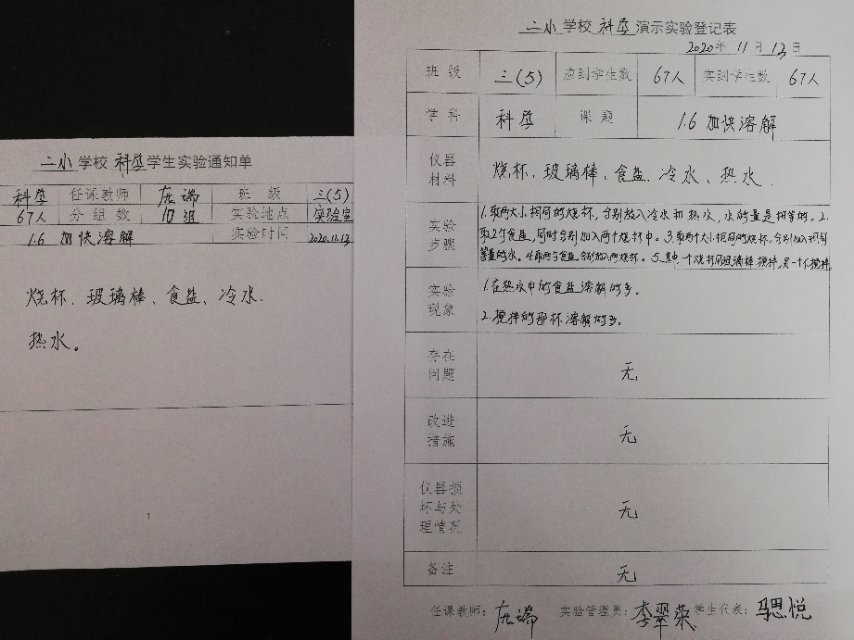 二小学校科学学生实验通知单
科学 任课教师 庞端 班级 三(5)
67人 分组数 10组 实验地点 实验室
1.6 加快溶解 实验时间 2020.11.13
烧杯、玻璃棒、食盐、冷水、
热水。
1
二小学校科学演示实验登记表
2020年11月13日
班级 三(5) 应到学生数 67人 实到学生数 67人
学科 科学 课题 1.6 加快溶解
仪器
材料
烧杯、玻璃棒、食盐、冷水、热水
实验
步骤
1.取两大小相同的烧杯,分别放入冷水和热水,水的量是相等的。2.
取2勺食盐,同时分别加入两个烧杯中。3.取两个大小相同的烧杯,分别加入相同
等量的水。4.取两勺食盐,分别放入两烧杯。5.其中一个烧杯用玻璃棒搅拌,另一个不搅拌
实验
现象
1.在热水中的食盐溶解的多。
2.搅拌的烧杯溶解的多。
存在
问题
无
改进
措施
无
仪器损
坏与处
理情况
无
备注 无
任课教师:庞端 实验管理员:李翠荣 学生代表:骆思悦